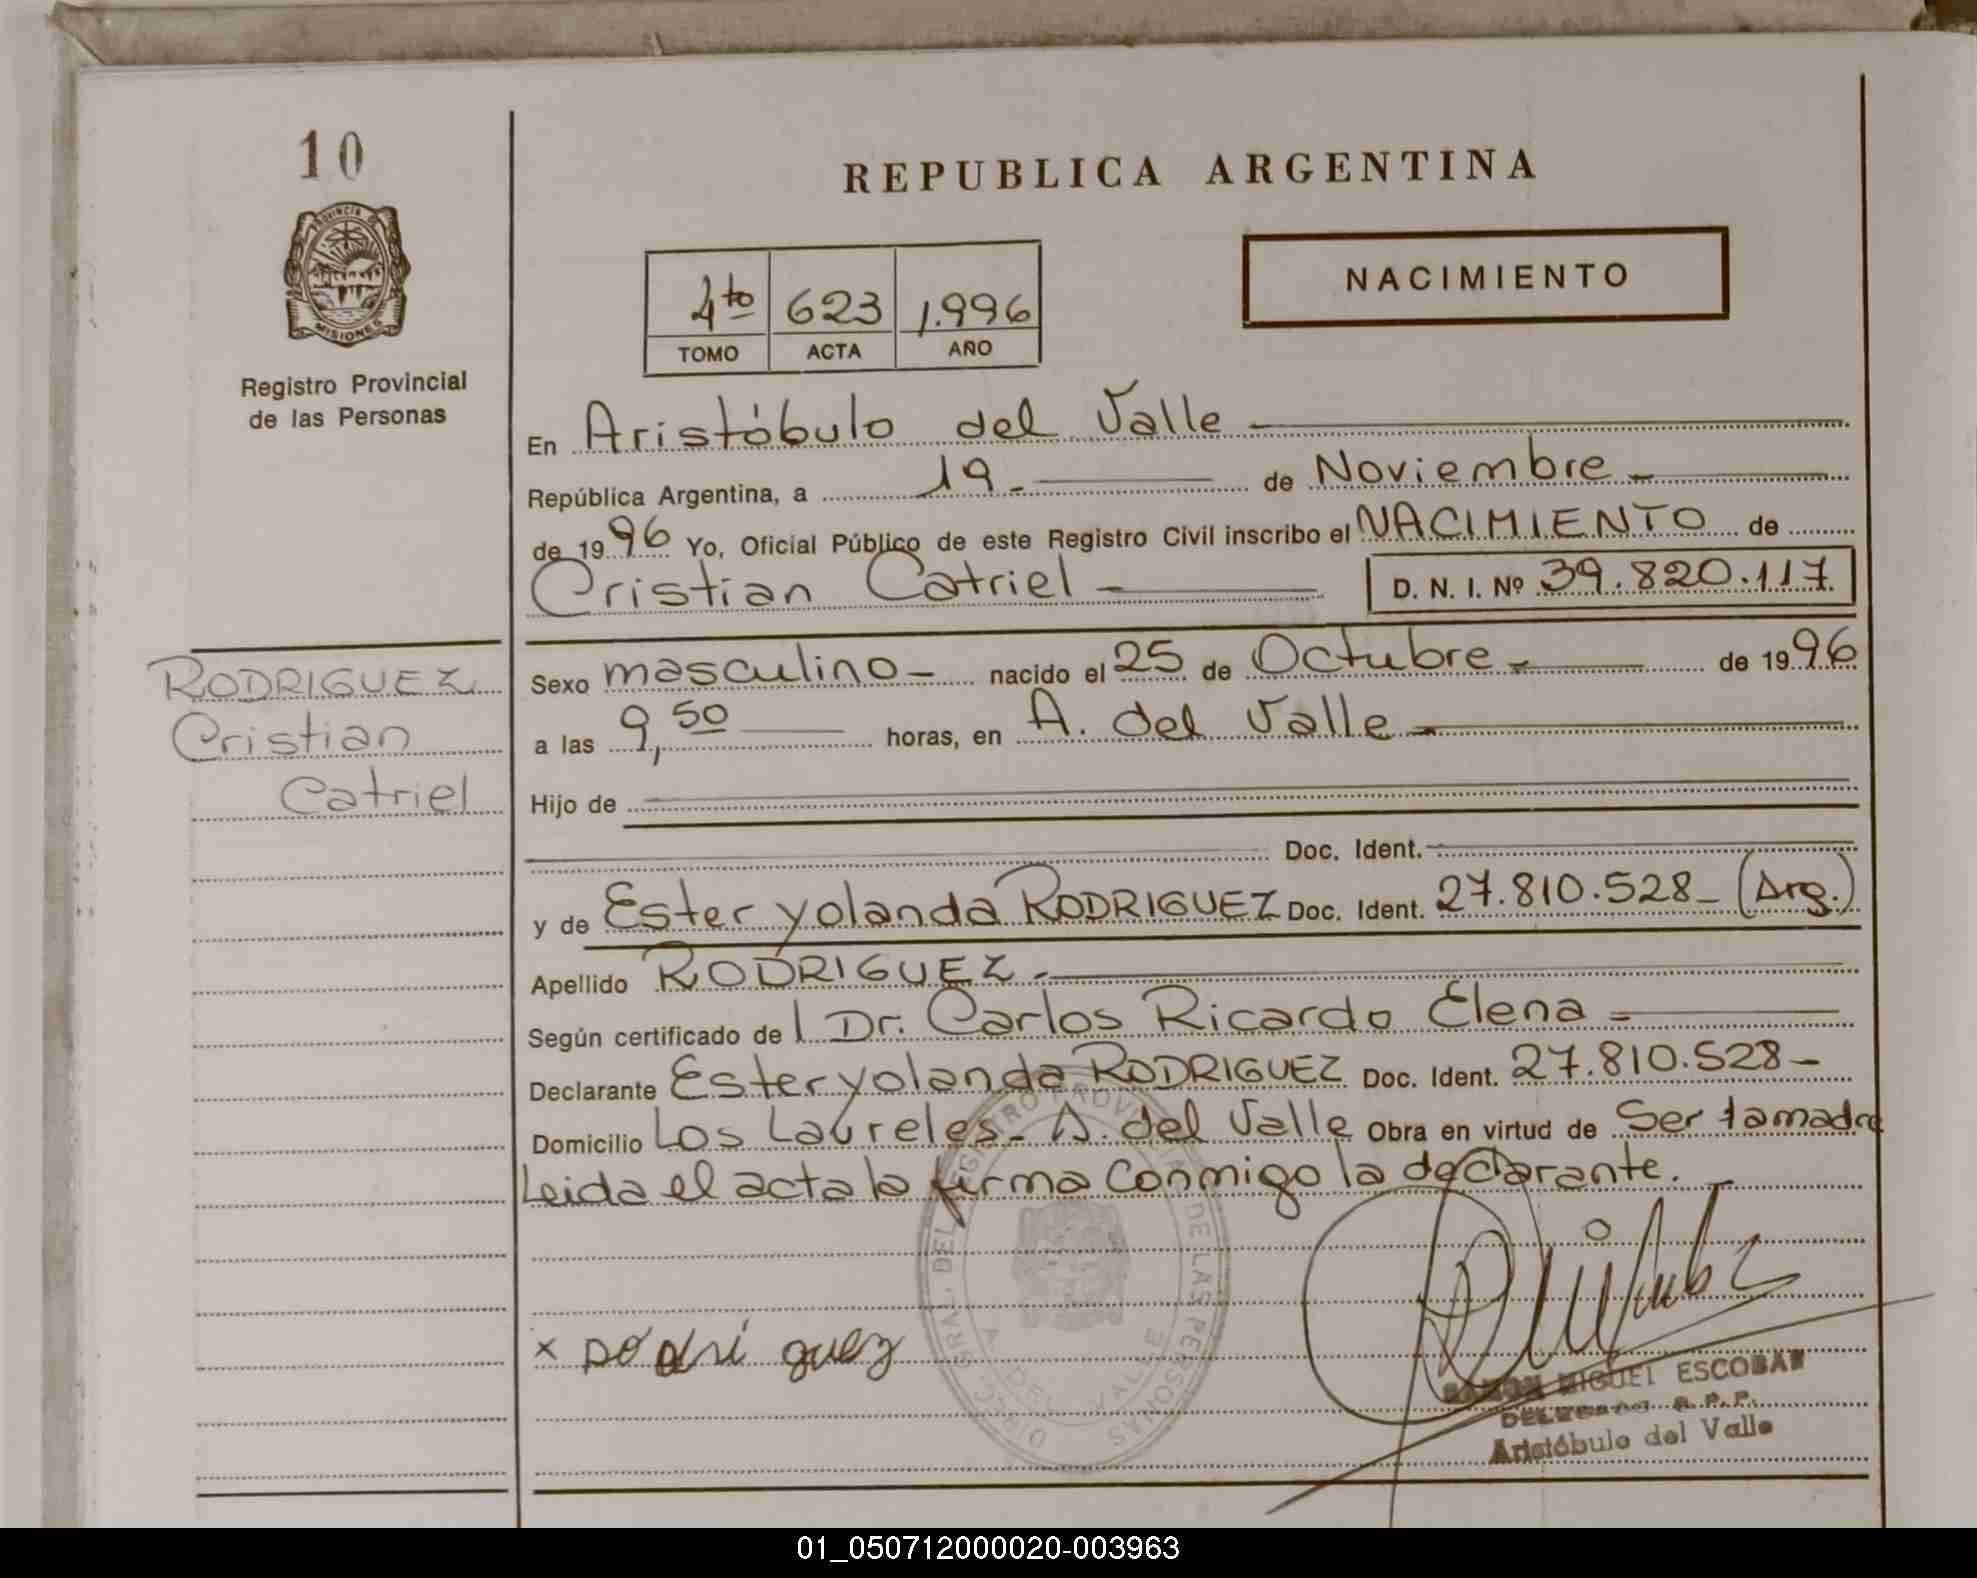 10
PROVINCIA DE
MISIONES
Registro Provincial
de las Personas
REPUBLICA ARGENTINA
NACIMIENTO
4to 623 1.996
TOMO ACTA AÑO
En Aristóbulo del Valle
República Argentina, a 19.- de Noviembre-
de 1996 Yo, Oficial Público de este Registro Civil inscribo el NACIMIENTO de
Cristian Catriel - D. N. I. Nº 39.820.117.
RODRIGUEZ
Cristian
Catriel
Sexo masculino- nacido el 25 de Octubre- de 1996
a las 9,50 horas, en A. del Valle-
Hijo de
Doc. Ident.
y de Ester yolanda RODRIGUEZ Doc. Ident. 27.810.528- (Arg.)
Apellido RODRIGUEZ.-
Según certificado de l Dr. Carlos Ricardo Elena -
Declarante Ester yolanda RODRIGUEZ Doc. Ident. 27.810.528-
Domicilio Los Laureles- A. del Valle Obra en virtud de Ser la madre
Leida el acta la firma conmigo la declarante.
DIRECC. GRAL. DEL REGISTRO PROVINCIAL DE LAS PERSONAS
A. DEL VALLE
x Rodri guez
RAMON MIGUEL ESCOBAR
DELEGADO R.P.P.
Aristóbulo del Valle
01_050712000020-003963